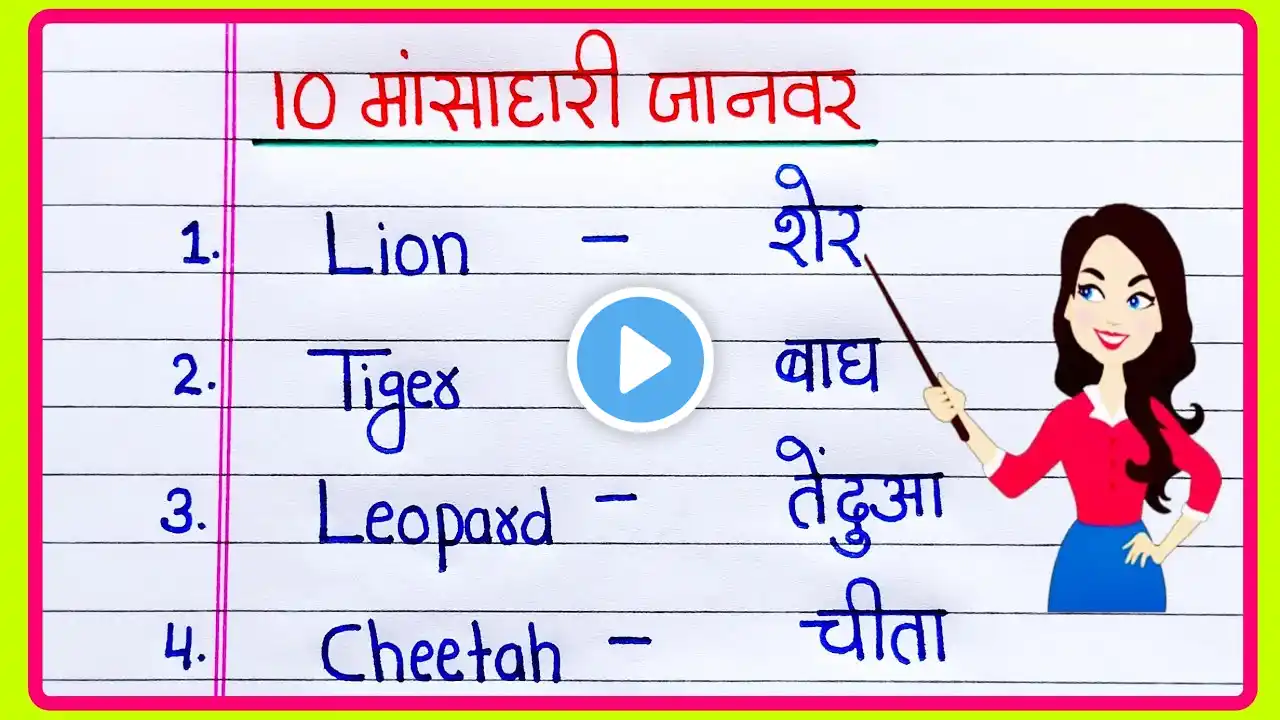 10 मांसाहारी जानवर
1. Lion - शेर
2. Tiger बाघ
3. Leopard - तेंदुआ
4. Cheetah - चीता